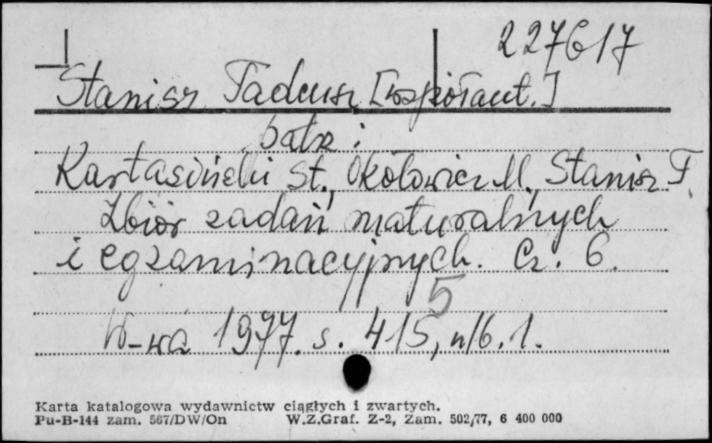 227617
Stanisz Tadeusz [współaut.]
patrz:
Kartasiński St., Okołowicz M., Stanisz T.
Zbiór zadań maturalnych
i egzaminacyjnych. Cz. 6.
5
W-wa 1977. s. 415, nlb. 1.
Karta katalogowa wydawnictw ciągłych i zwartych.
Pu-B-144 zam. 567/DW/On W.Z.Graf. Z-2, Zam. 502/77, 6 400 000